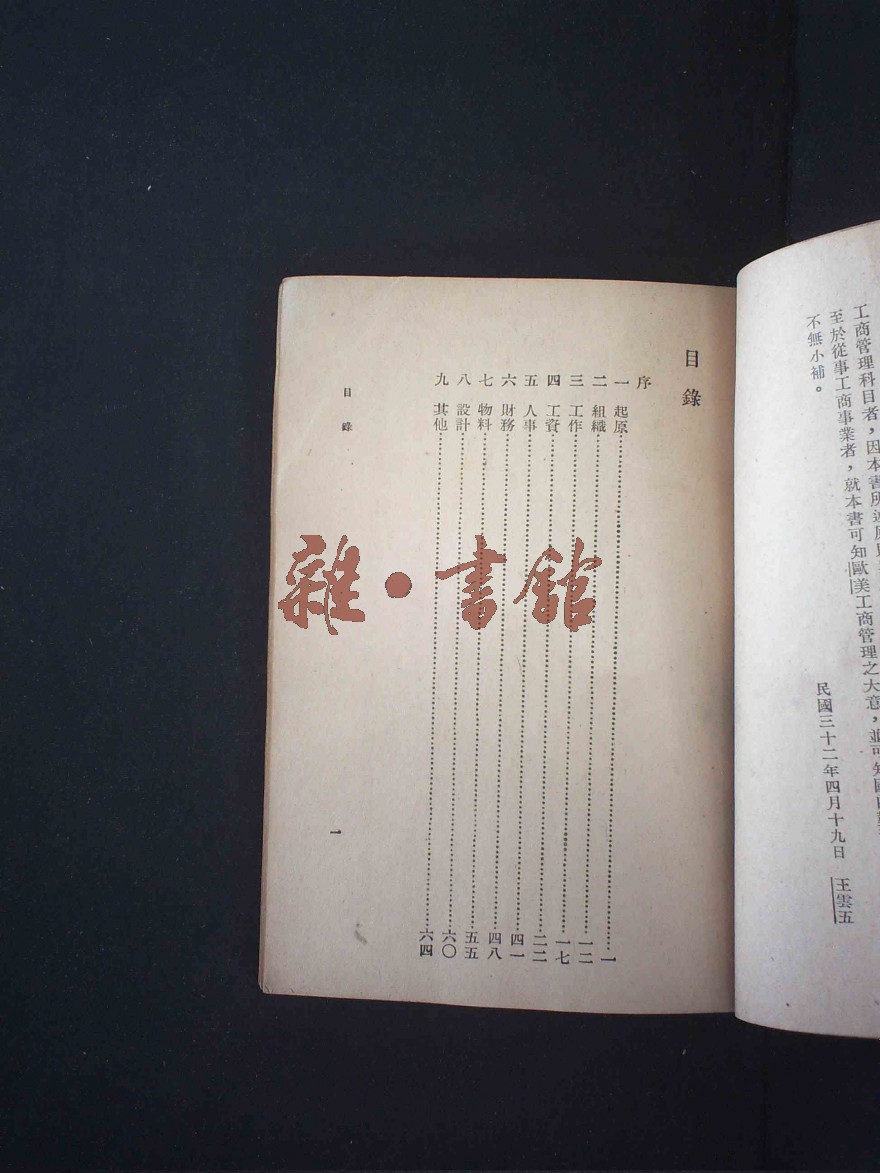 工商管理科目者，因本書所
至於從事工商事業者，就本書可知歐美工商管理之大意，並可知國
不無小補。
民國三十二年四月十九日 王雲五
目錄
序
一 起原 一
二 組織 一二
三 工作 一七
四 工資 二二
五 人事 四一
六 財務 四八
七 物料 五五
八 設計 六〇
九 其他 六四
目錄
一
雜·書館